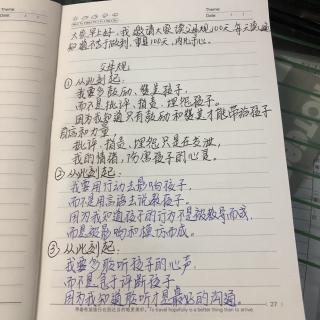 Theme:
Date:
Theme:
Date:
大家早上好，我邀请大家读父母规100天，每天读，
知道不等于做到，重复100天，内化于心。
父母规
①从此刻起：
我要多鼓励、赞美孩子，
而不是批评、指责、埋怨孩子。
因为我知道只有鼓励和赞美才能带给孩子
自信和力量
批评、指责、埋怨只是在发泄
我的情绪，伤害孩子的心灵。
②从此刻起：
我要用行动去影响孩子，
而不是用言语去说教孩子。
因为我知道孩子的行为不是被教导而成，
而是被影响和模仿而成。
③从此刻起：
我要多聆听孩子的心声，
而不是急于评断孩子。
因为我知道聆听才是最好的沟通。
27
带着希望旅行比到达目的地更美好。To travel hopefully is a better thing than to arrive.